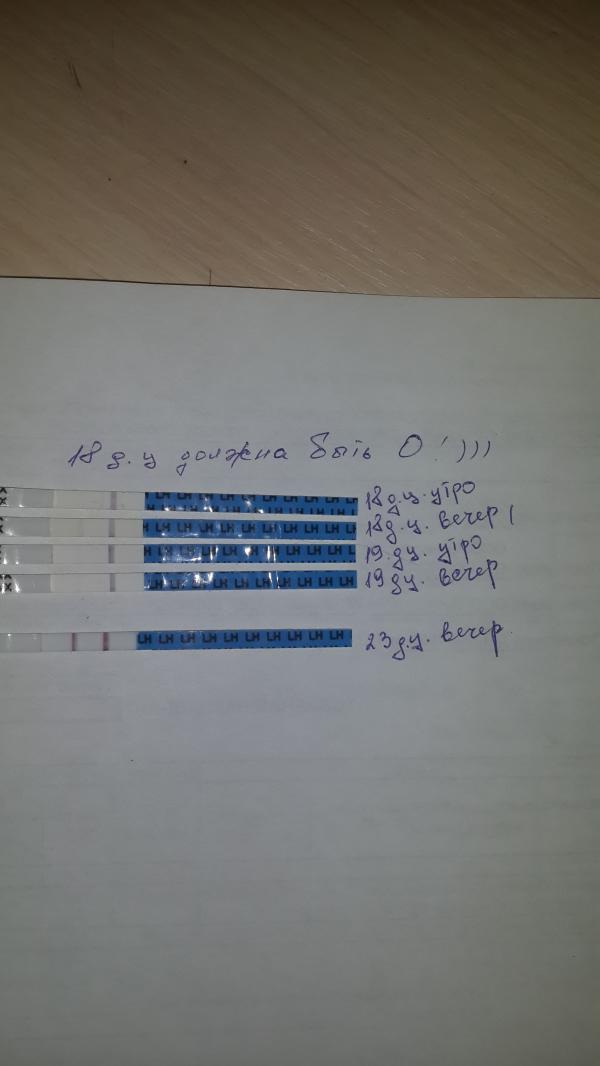 18 д.ц должна быть О!)))
LH LH LH LH LH LH LH LH LH 18 д.ц. утро
LH LH LH LH LH LH LH LH LH LH 18 д.ц. вечер
LH LH LH LH LH LH LH LH LH 19 д.ц. утро
LH LH LH LH LH LH LH LH LH LH 19 д.ц. вечер
LH LH LH LH LH LH LH LH LH LH 23 д.ц. вечер.